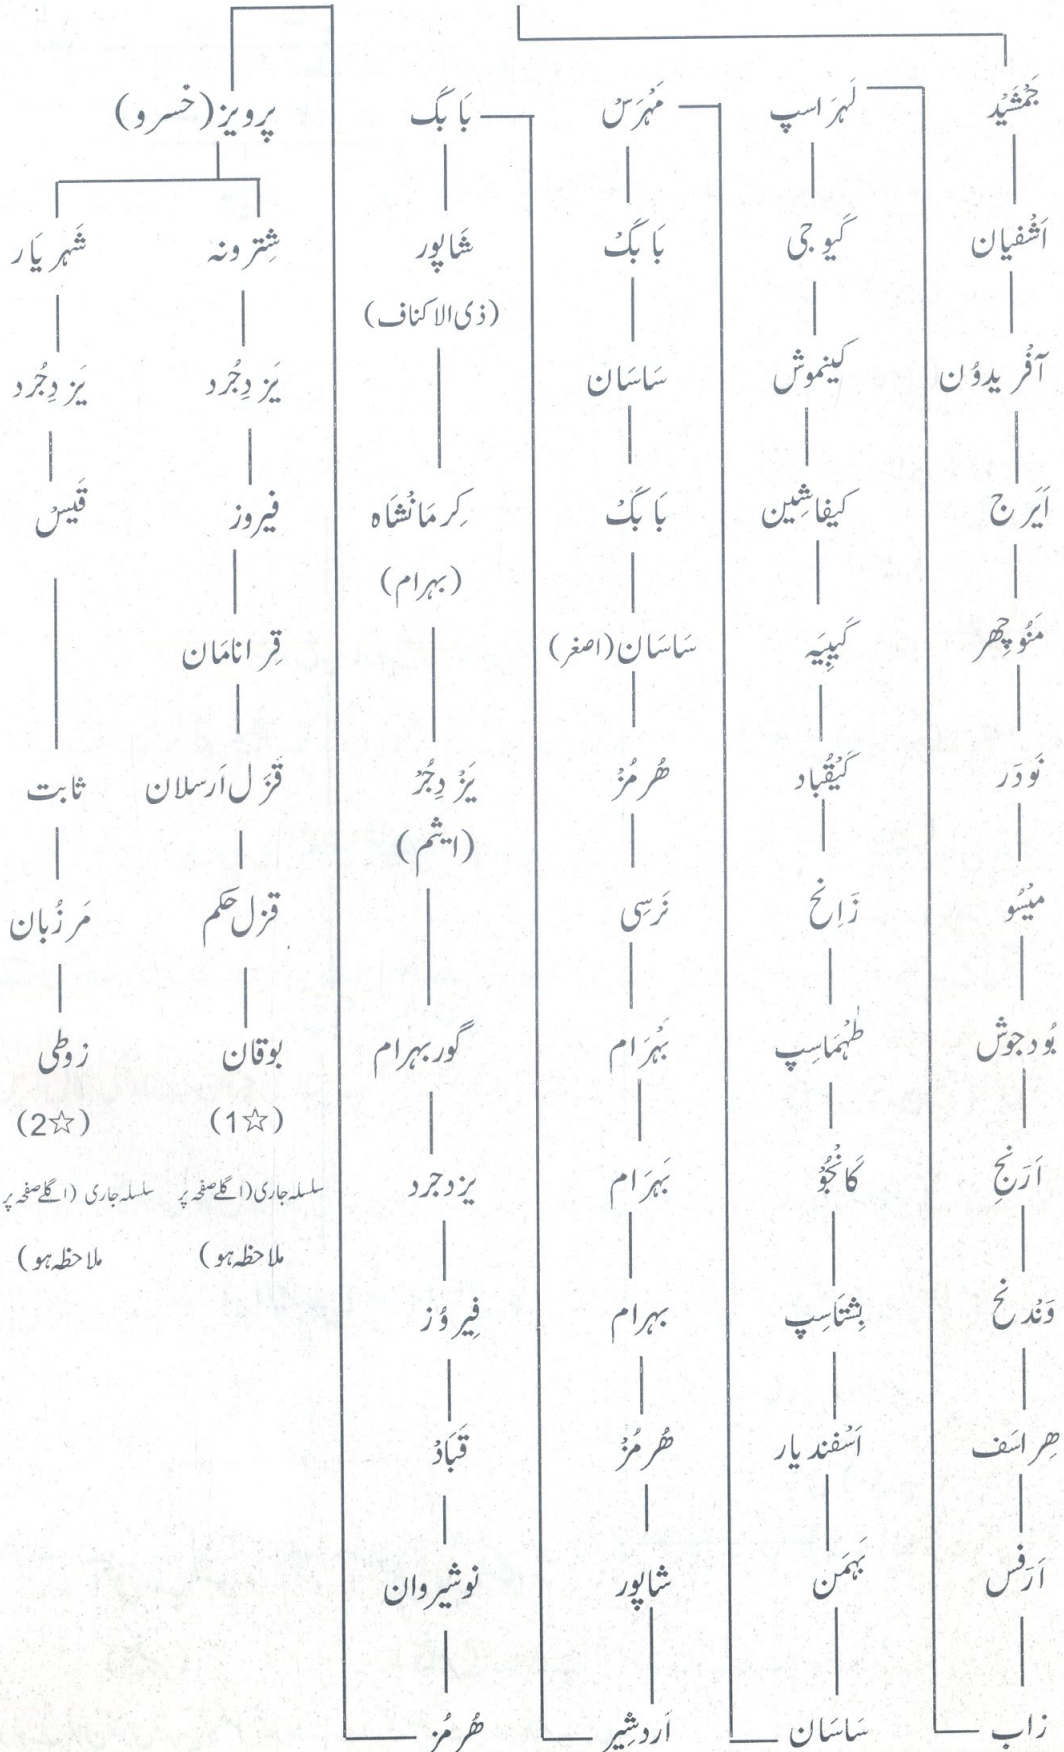 جَمْشَیْد
اَشْفیان
آفْریدوُن
اَیَرج
مَنُوچِھر
نَودَر
مَیْسُو
بُودجوش
اَرَنجِ
وَنْدنح
ھِراسَف
اَرَفس
زاب
لَہرَاسپ
کَیوجی
کینموش
کیفاشِین
کَیپِیَہ
کَیْقُباد
زَانح
طٰہْمَاسِپ
کَانْجُوْ
بِشتَاسِپ
اَسْفندیار
بَہمَن
سَاسَان
مَہْرَسْ
بَابَکْ
سَاسَان
بَابَکْ
سَاسَان (اصغر)
ھُرمُزْ
نَرسِی
بَہْرَام
بَہرَام
بہرام
ھُرمُزْ
شاپور
اَردشِیر
بَابَکْ
شَاپور
(ذی الاکناف)
کِرمَانْشَاہ
(بہرام)
یَزْدِجُرْ
(ایثم)
گوربہرام
یزدجرد
فِیروُز
قَبَادْ
نوشیروان
ھُرمُز
پرویز (خسرو)
شِترونہ
یَزدِجُرد
فیروز
قِرانامَان
قَزَل اَرسلان
قزل حکم
بوقان
(1☆)
سلسلہ جاری (اگلے صفحہ پر
ملاحظہ ہو)
شَہریَار
یَزدِجُرد
قَیسْ
ثابت
مَرزُبان
زوطی
(2☆)
سلسلہ جاری (اگلے صفحہ پر
ملاحظہ ہو)